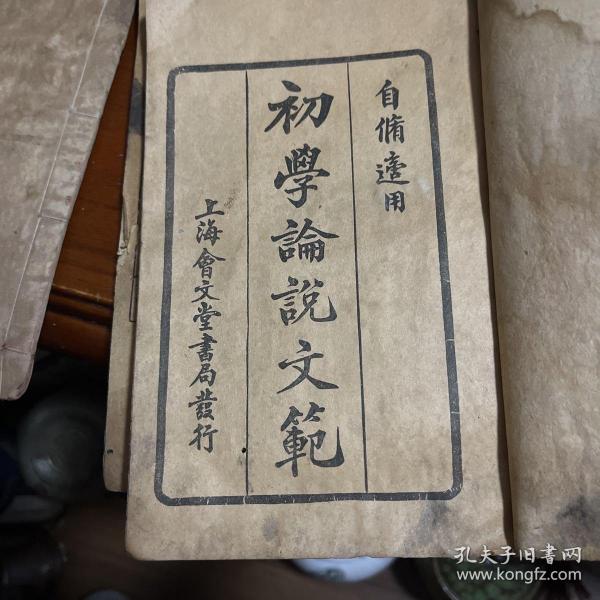 自脩適用
初學論說文範
上海會文堂書局發行
孔夫子旧書网
www.kongfz.com